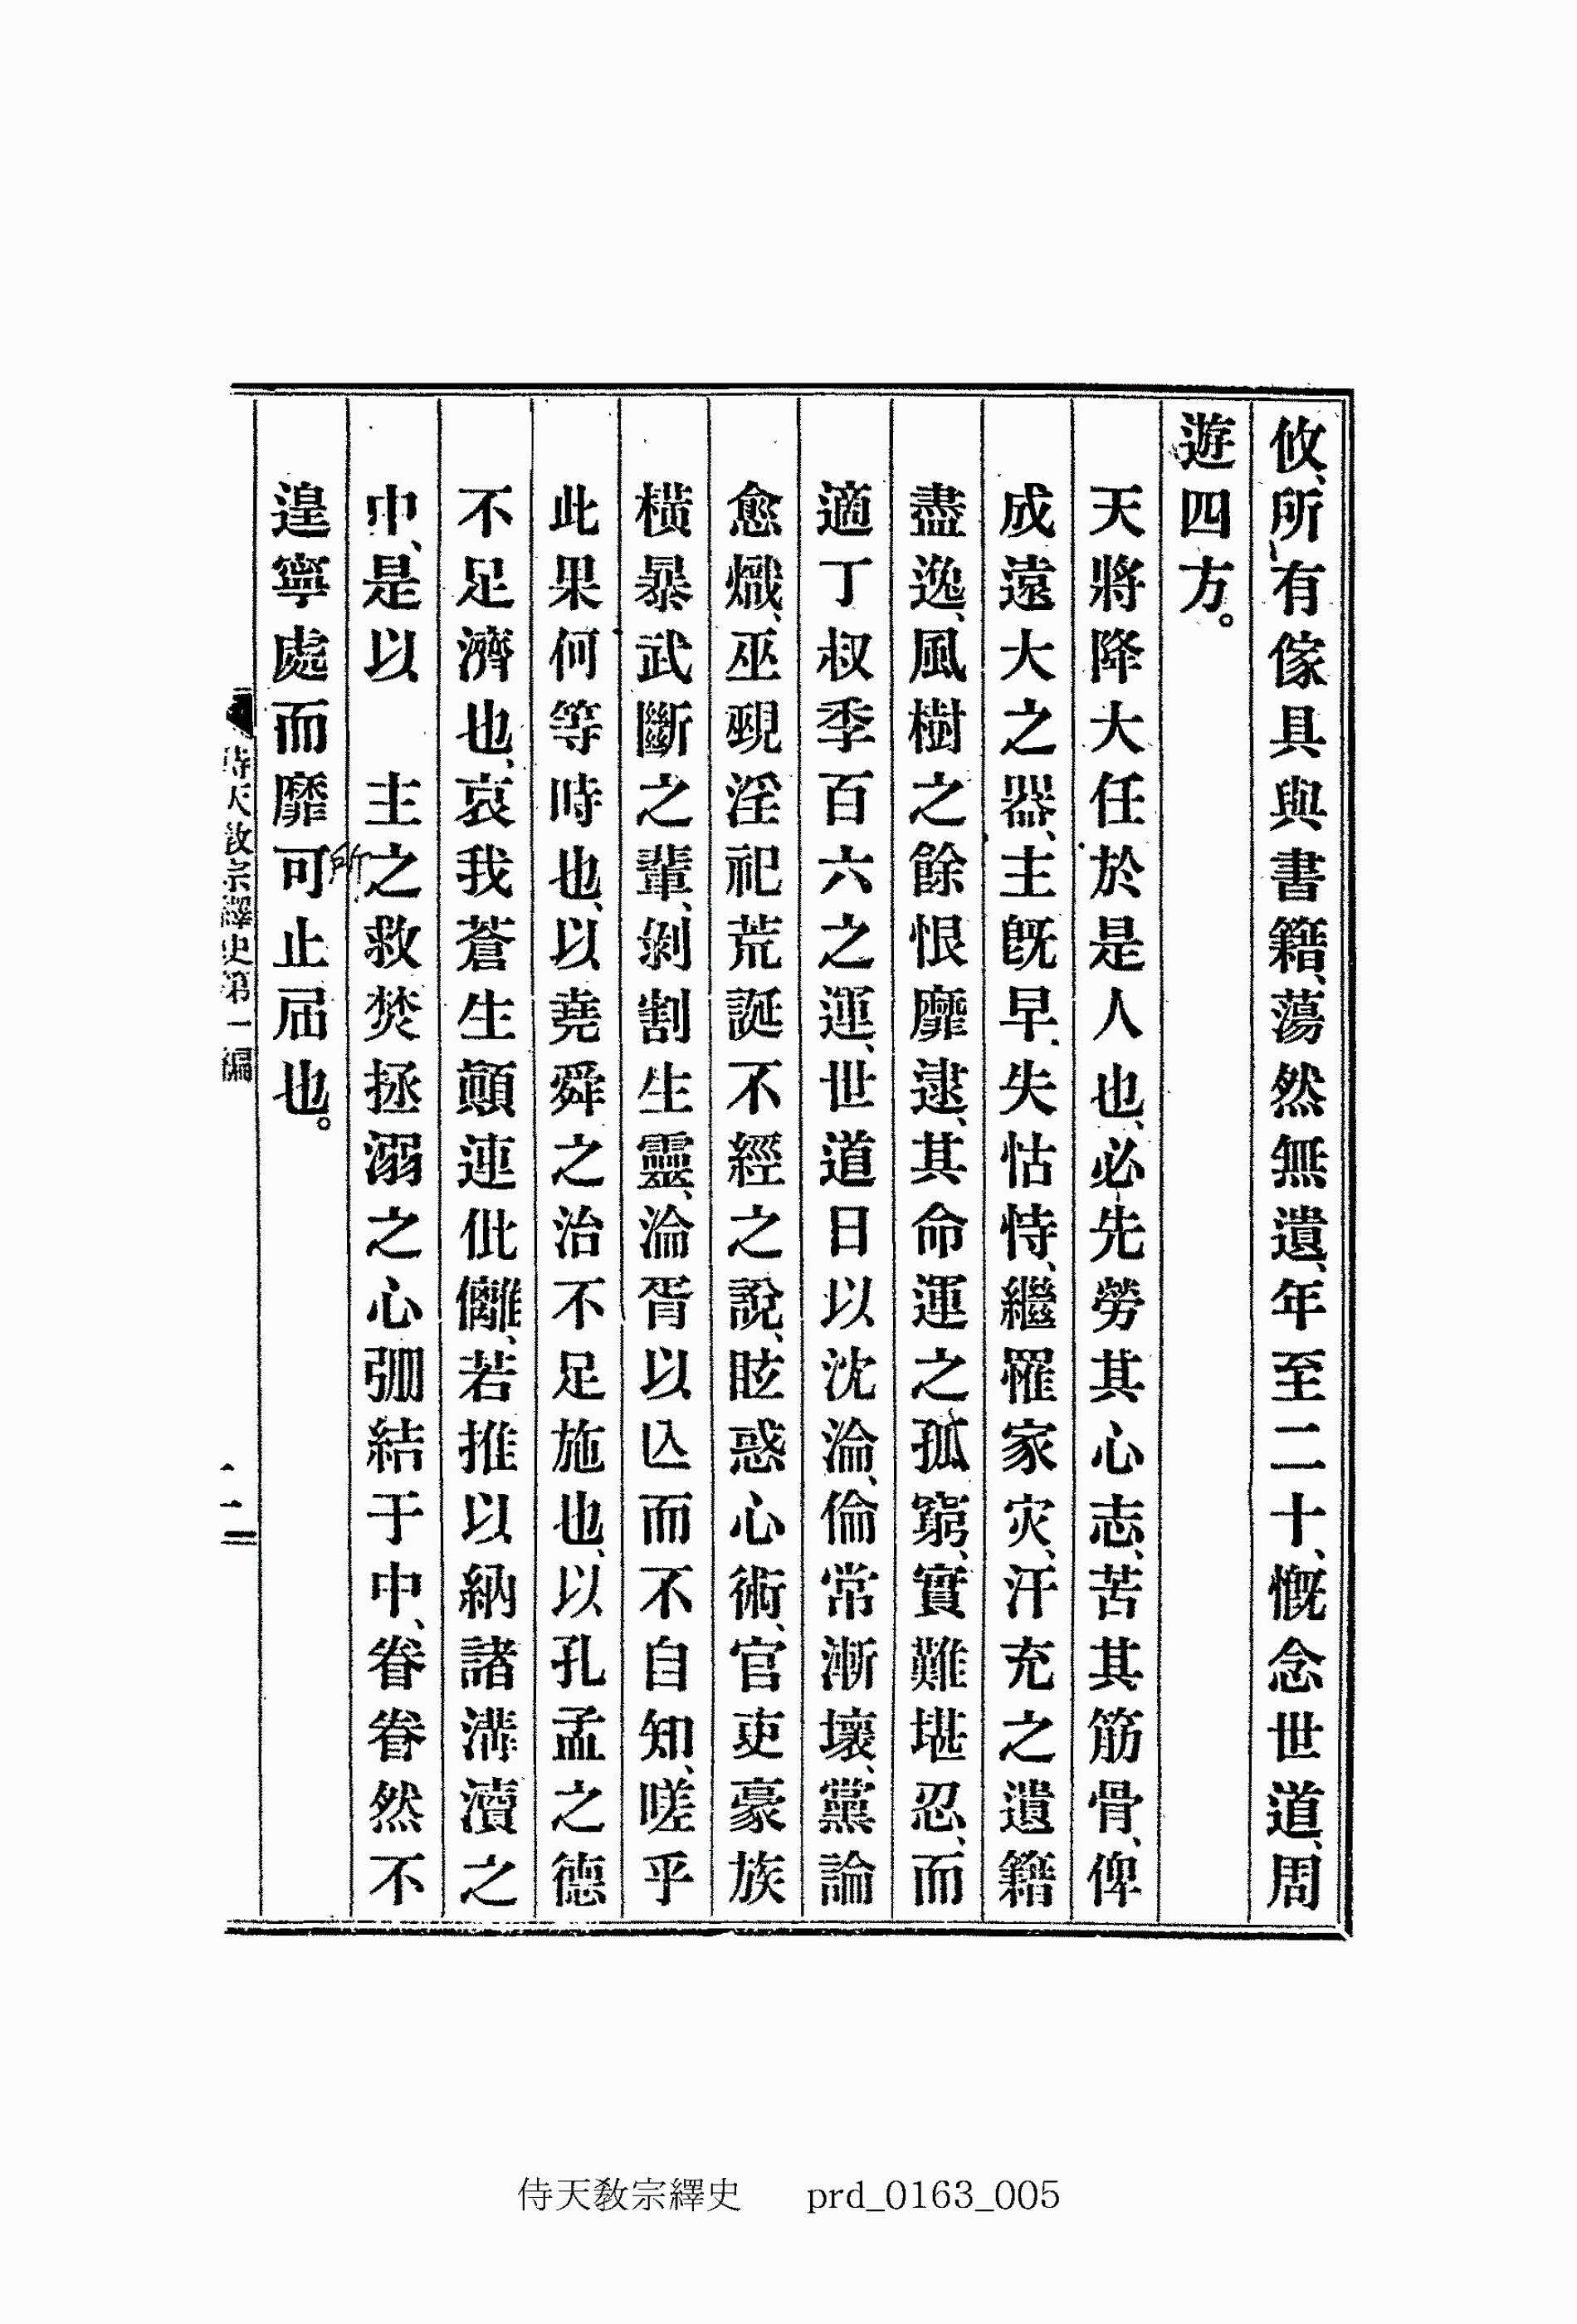 攸、所有傢具與書籍、蕩然無遺、年至二十、慨念世道、周
遊四方。
天將降大任於是人也、必先勞其心志、苦其筋骨、俾
成遠大之器、主旣早失怙恃、繼罹家灾、汗充之遺籍
盡逸、風樹之餘恨靡逮、其命運之孤窮、實難堪忍、而
適丁叔季百六之運、世道日以沈淪、倫常漸壞、黨論
愈熾、巫覡淫祀荒誕不經之說、眩惑心術、官吏豪族
橫暴武斷之輩、剝割生靈、淪胥以亾而不自知、嗟乎
此果何等時也、以堯舜之治不足施也、以孔孟之德
不足濟也、哀我蒼生顚連仳離、若推以納諸溝瀆之
中、是以　主之救焚拯溺之心弸結于中、眷眷然不
所
遑寧處而靡可止屆也。
侍天敎宗繹史第一編
二
侍天敎宗繹史 prd_0163_005